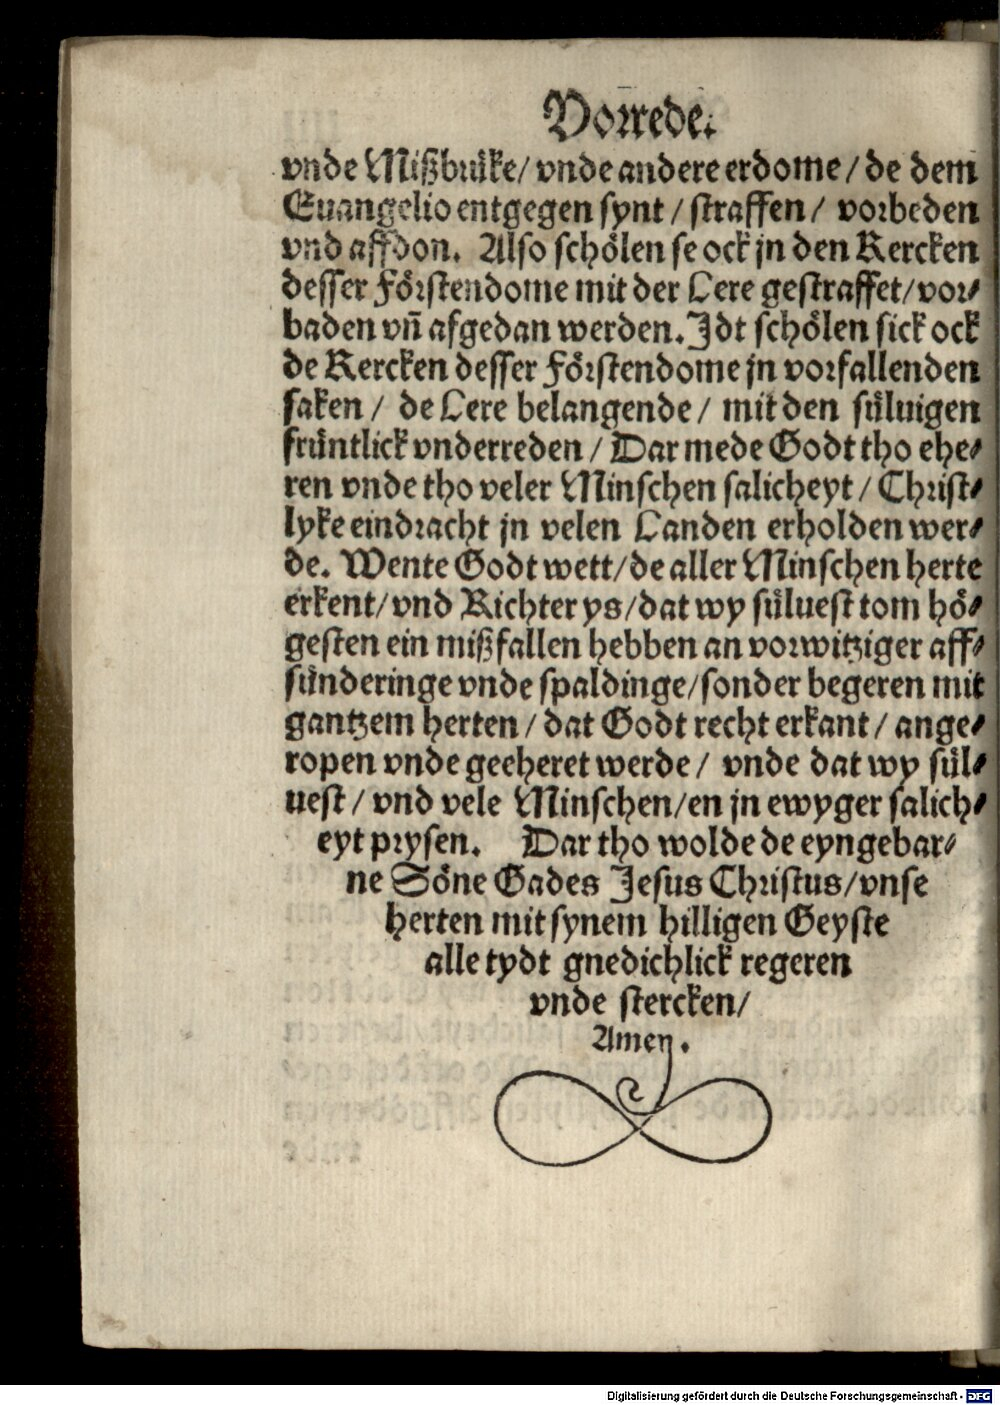 Vorrede.
vnde Mißbrüke/ vnde andere erdome/ de dem
Euangelio entgegen synt/ straffen/ vorbeden
vnd affdon. Also schölen se ock jn den Kercken
desser Förstendome mit der Lere gestraffet/ vor⸗
baden vñ afgedan werden. Jdt schölen sick ock
de Kercken desser Förstendome jn vorfallenden
saken/ de Lere belangende/ mit den süluigen
früntlick vnderreden/ Dar mede Godt tho ehe⸗
ren vnde tho veler Minschen salicheyt/ Christ⸗
lyke eindracht jn velen Landen erholden wer⸗
de. Wente Godt wett/ de aller Minschen herte
erkent/ vnd Richter ys/ dat wy süluest tom hö⸗
gesten ein mißfallen hebben an vorwitziger aff⸗
sünderinge vnde spaldinge/ sonder begeren mit
gantzem herten/ dat Godt recht erkant/ ange⸗
ropen vnde geeheret werde/ vnde dat wy sül⸗
uest/ vnd vele Minschen/ en jn ewyger salich⸗
eyt prysen. Dar tho wolde de eyngebar⸗
ne Söne Gades Jesus Christus/ vnse
herten mit synem hilligen Geyste
alle tydt gnedichlick regeren
vnde stercken/
Amen.
Digitalisierung gefördert durch die Deutsche Forschungsgemeinschaft - DFG